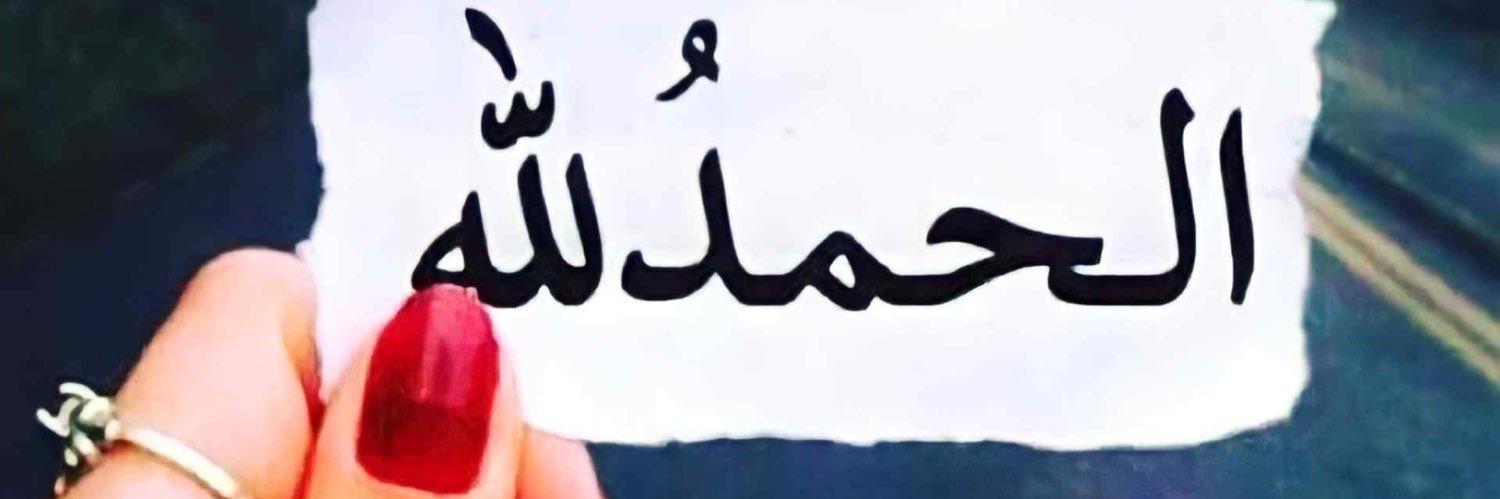 الحمدُلله